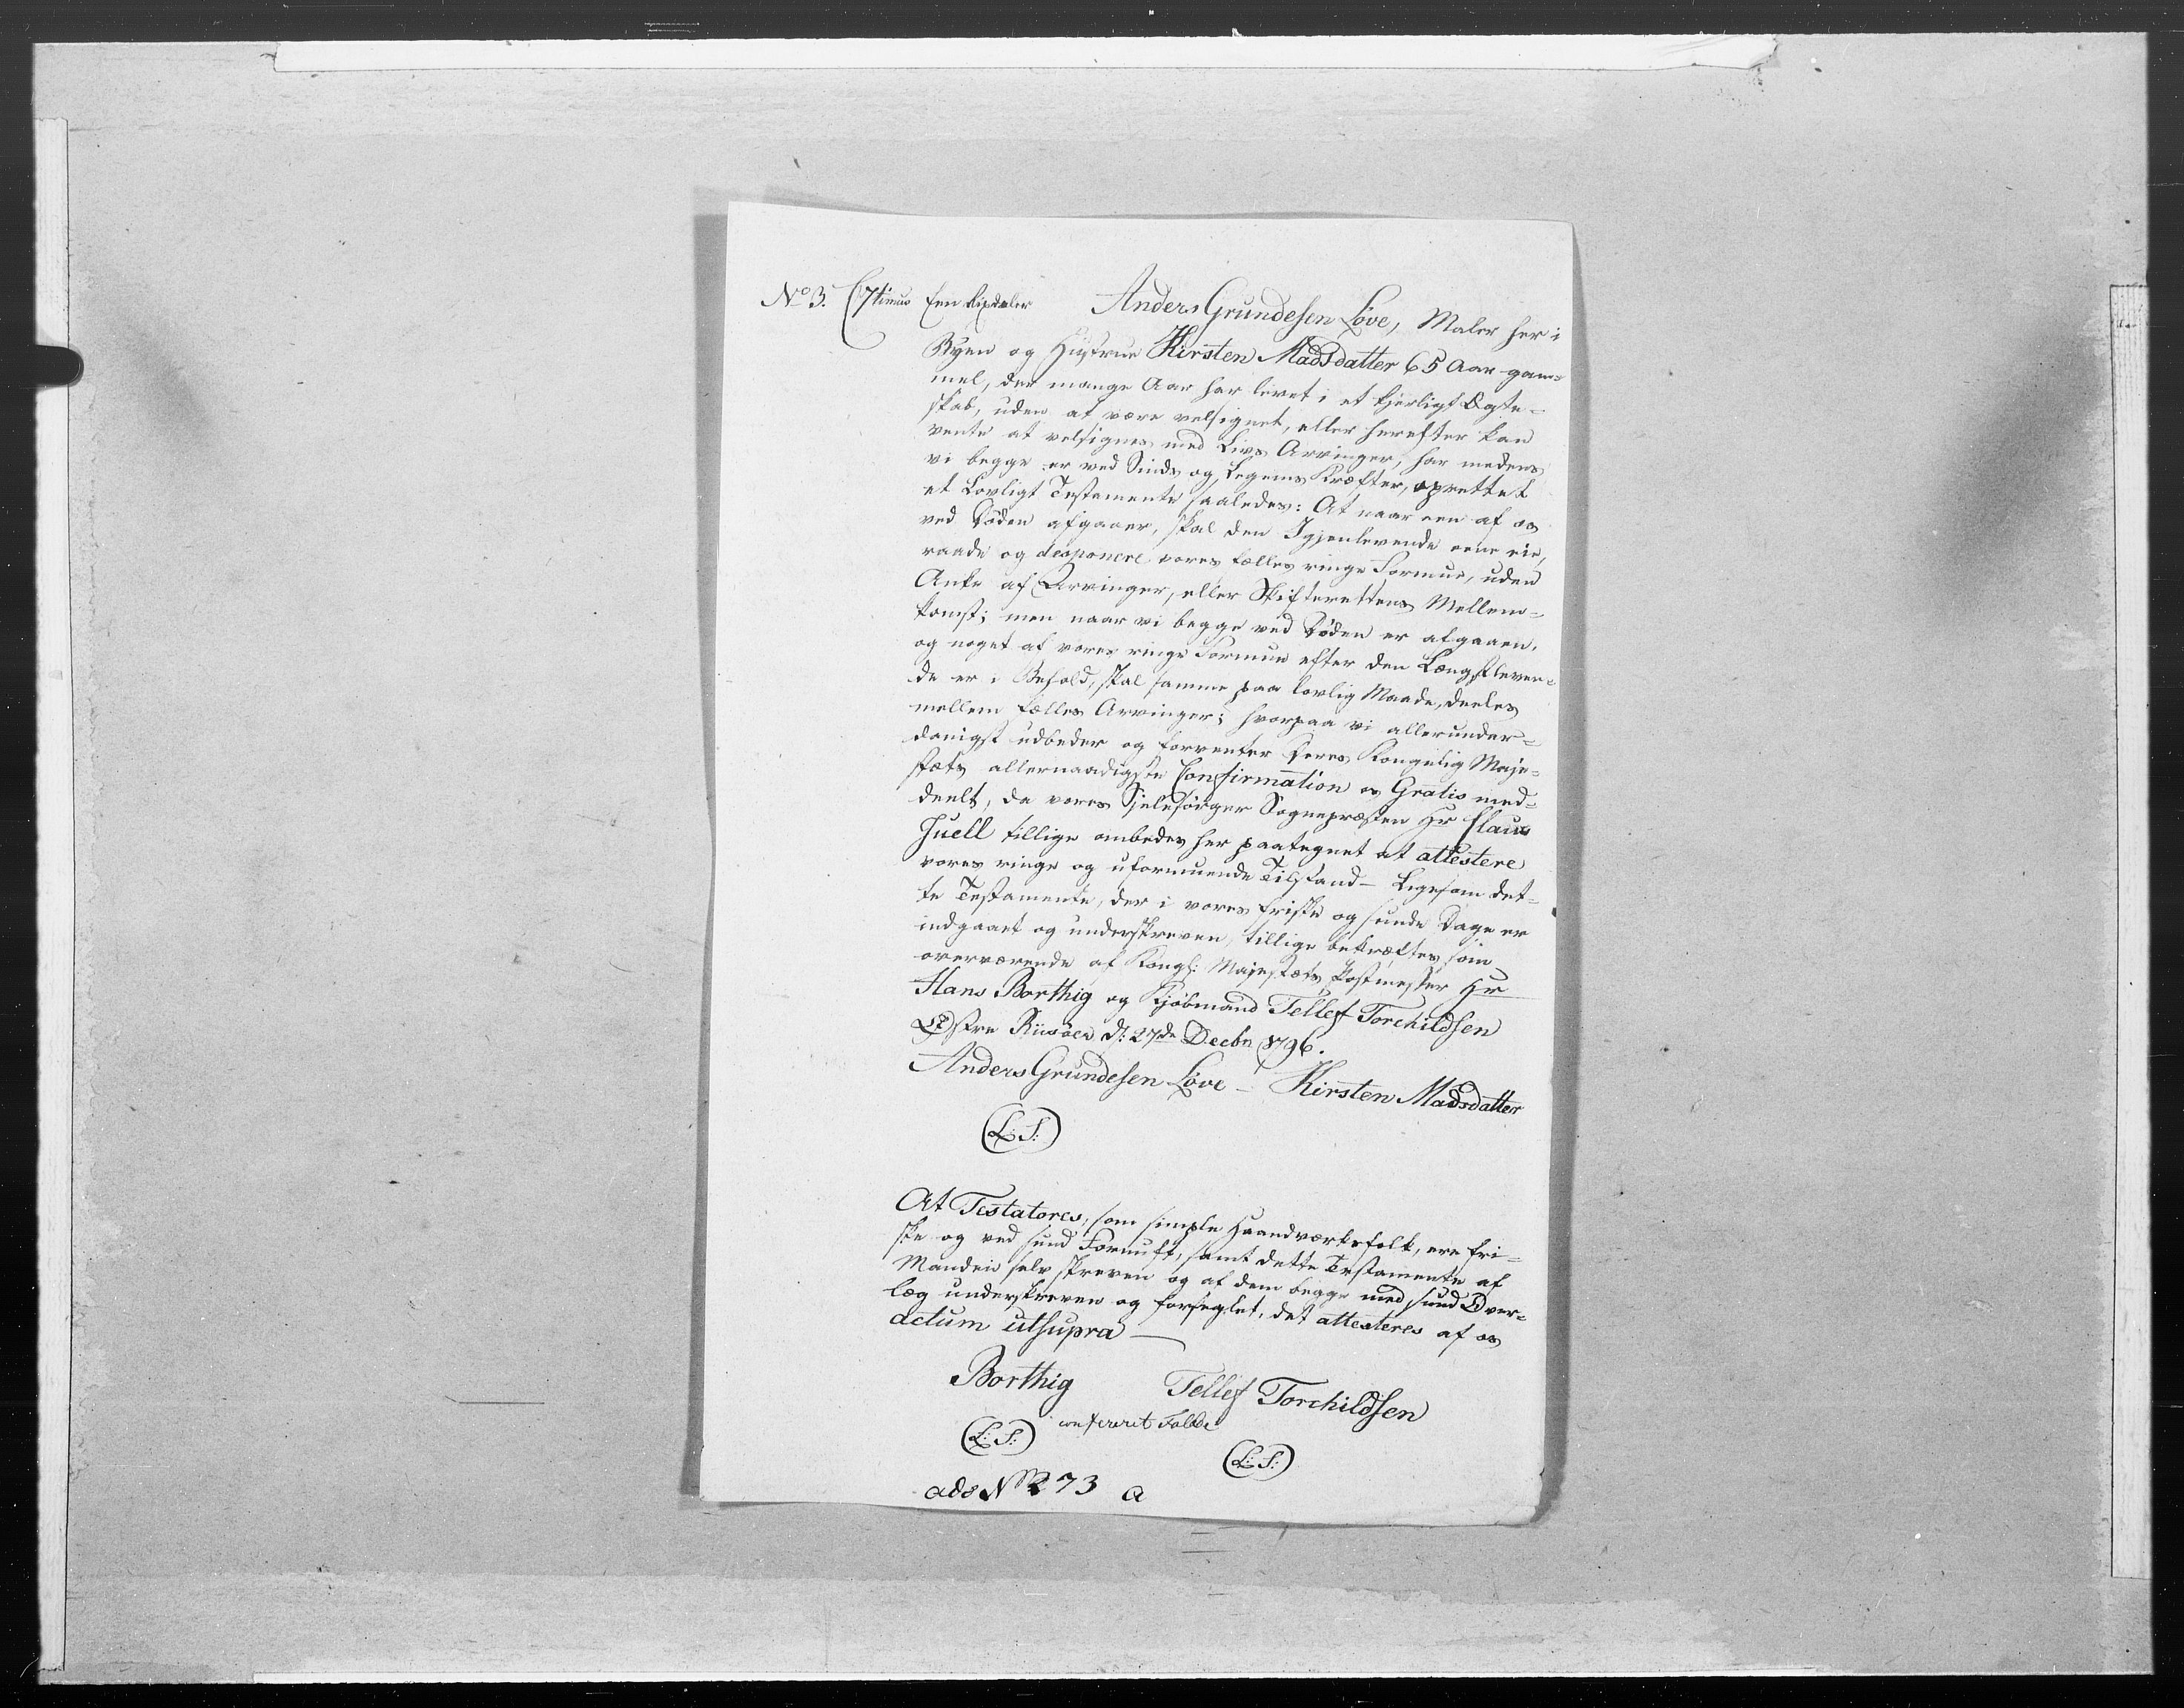 No 3. Een Rixdaler Anders Grundesen Löve, Maler her i
Byen og Hustrue Kirsten Madsdatter 65 Aar gam=
mel, der mange Aar har levet i et kjerligt Ægte=
skab, uden at være velsignet, eller herefter kan
vente at velsignes med Livs Arvinger, har medens
vi begge er ved Sinds og Legems Kræfter, oprettet
et Lovligt Testamente saaledes: At naar een af os
ved Döden afgaaer, skal den Igjenlevende eene eie,
raade og desponere vores fælles ringe Formue, uden
Anke af Arvinger, eller Skifterettens Mellem=
komst; men naar vi begge ved Döden er afgaaen,
og noget af vores ringe Formue efter den Længstleven=
de er i Behold, skal samme paa lovlig Maade, deeles
mellem fælles Arvinger; hvorpaa vi allerunder=
danigst udbeder og forventer Deres Kongelig Maje=
stæts allernaadigste Confirmation os Gratis med=
deelt, da vores Sjelesörger Sognepræsten Hr Claus
Juell tillige ombedes her paategnet at attestere
vores ringe og uformuende Tilstand – Ligesom det=
te Testamente, der i vores friske og sunde Dage er
indgaaet og underskreven, tillige bekræftes som
overværende af Kongl: Majestæts Postmester Hr
Hans Borthig og Kjöbmand Tellef Torchildsen
Östre Riisöer d: 27de Decbr 1796.
Anders Grundesen Löve – Kirsten Madsdatter
(L:S:)
At Testatores, som simple Haandværksfolk, ere fri=
ske og ved sund Fornuft, samt dette Testamente af
Manden selv skreven og af dem begge med sund Over=
læg underskreven og forseglet, det attesteres af os
actum utsupra –
Borthig Tellef Torchildsen
(L:S:) confererit
(L:S:)
ad No 273 a